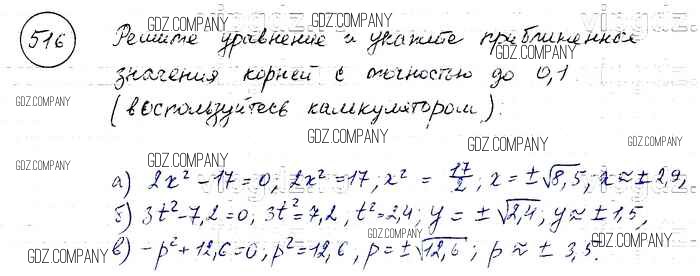 516 Решите уравнение и укажите приближенные
значения корней с точностью до 0,1
(воспользуйтесь калькулятором).
а) 2x² - 17 = 0, 2x² = 17, x² = 17/2; x = ±√8,5; x ≈ ± 2,9,
б) 3t² - 7,2 = 0, 3t² = 7,2, t² = 2,4; y = ±√2,4; y ≈ ± 1,5,
в) -p² + 12,6 = 0, p² = 12,6, p = ±√12,6; p ≈ ± 3,5.
GDZ.COMPANY
GDZ.COMPANY
GDZ.COMPANY
GDZ.COMPANY
GDZ.COMPANY
GDZ.COMPANY
GDZ.COMPANY
GDZ.COMPANY
GDZ.COMPANY
GDZ.COMPANY
GDZ.COMPANY
GDZ.COMPANY
GDZ.COMPANY